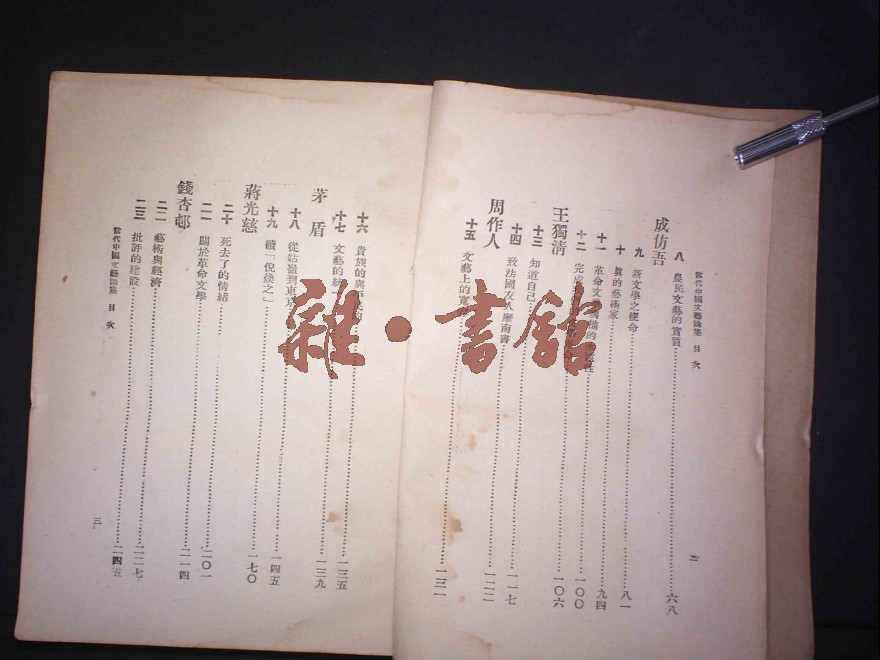 當代中國文藝論集 目次
二
八 農民文藝的實質……六八
成仿吾
九 新文學之使命……八一
十 真的藝術家……九四
十一 革命文學……性……一〇〇
十二 完成……一〇六
王獨清
十三 知道自己……一一七
十四 致法國友人摩南書……一二二
周作人
十五 文藝上的寬……一三一
十六 貴族的與平民的……一三五
十七 文藝的統一……一三九
茅盾
十八 從牯嶺到東京……一四五
十九 讀「倪煥之」……一七〇
蔣光慈
二十 死去了的情緒……二〇一
二一 關於革命文學……二一四
錢杏邨
二二 藝術與經濟……二二七
二三 批評的建設……二四五
當代中國文藝論集 目次
三
雜·書館